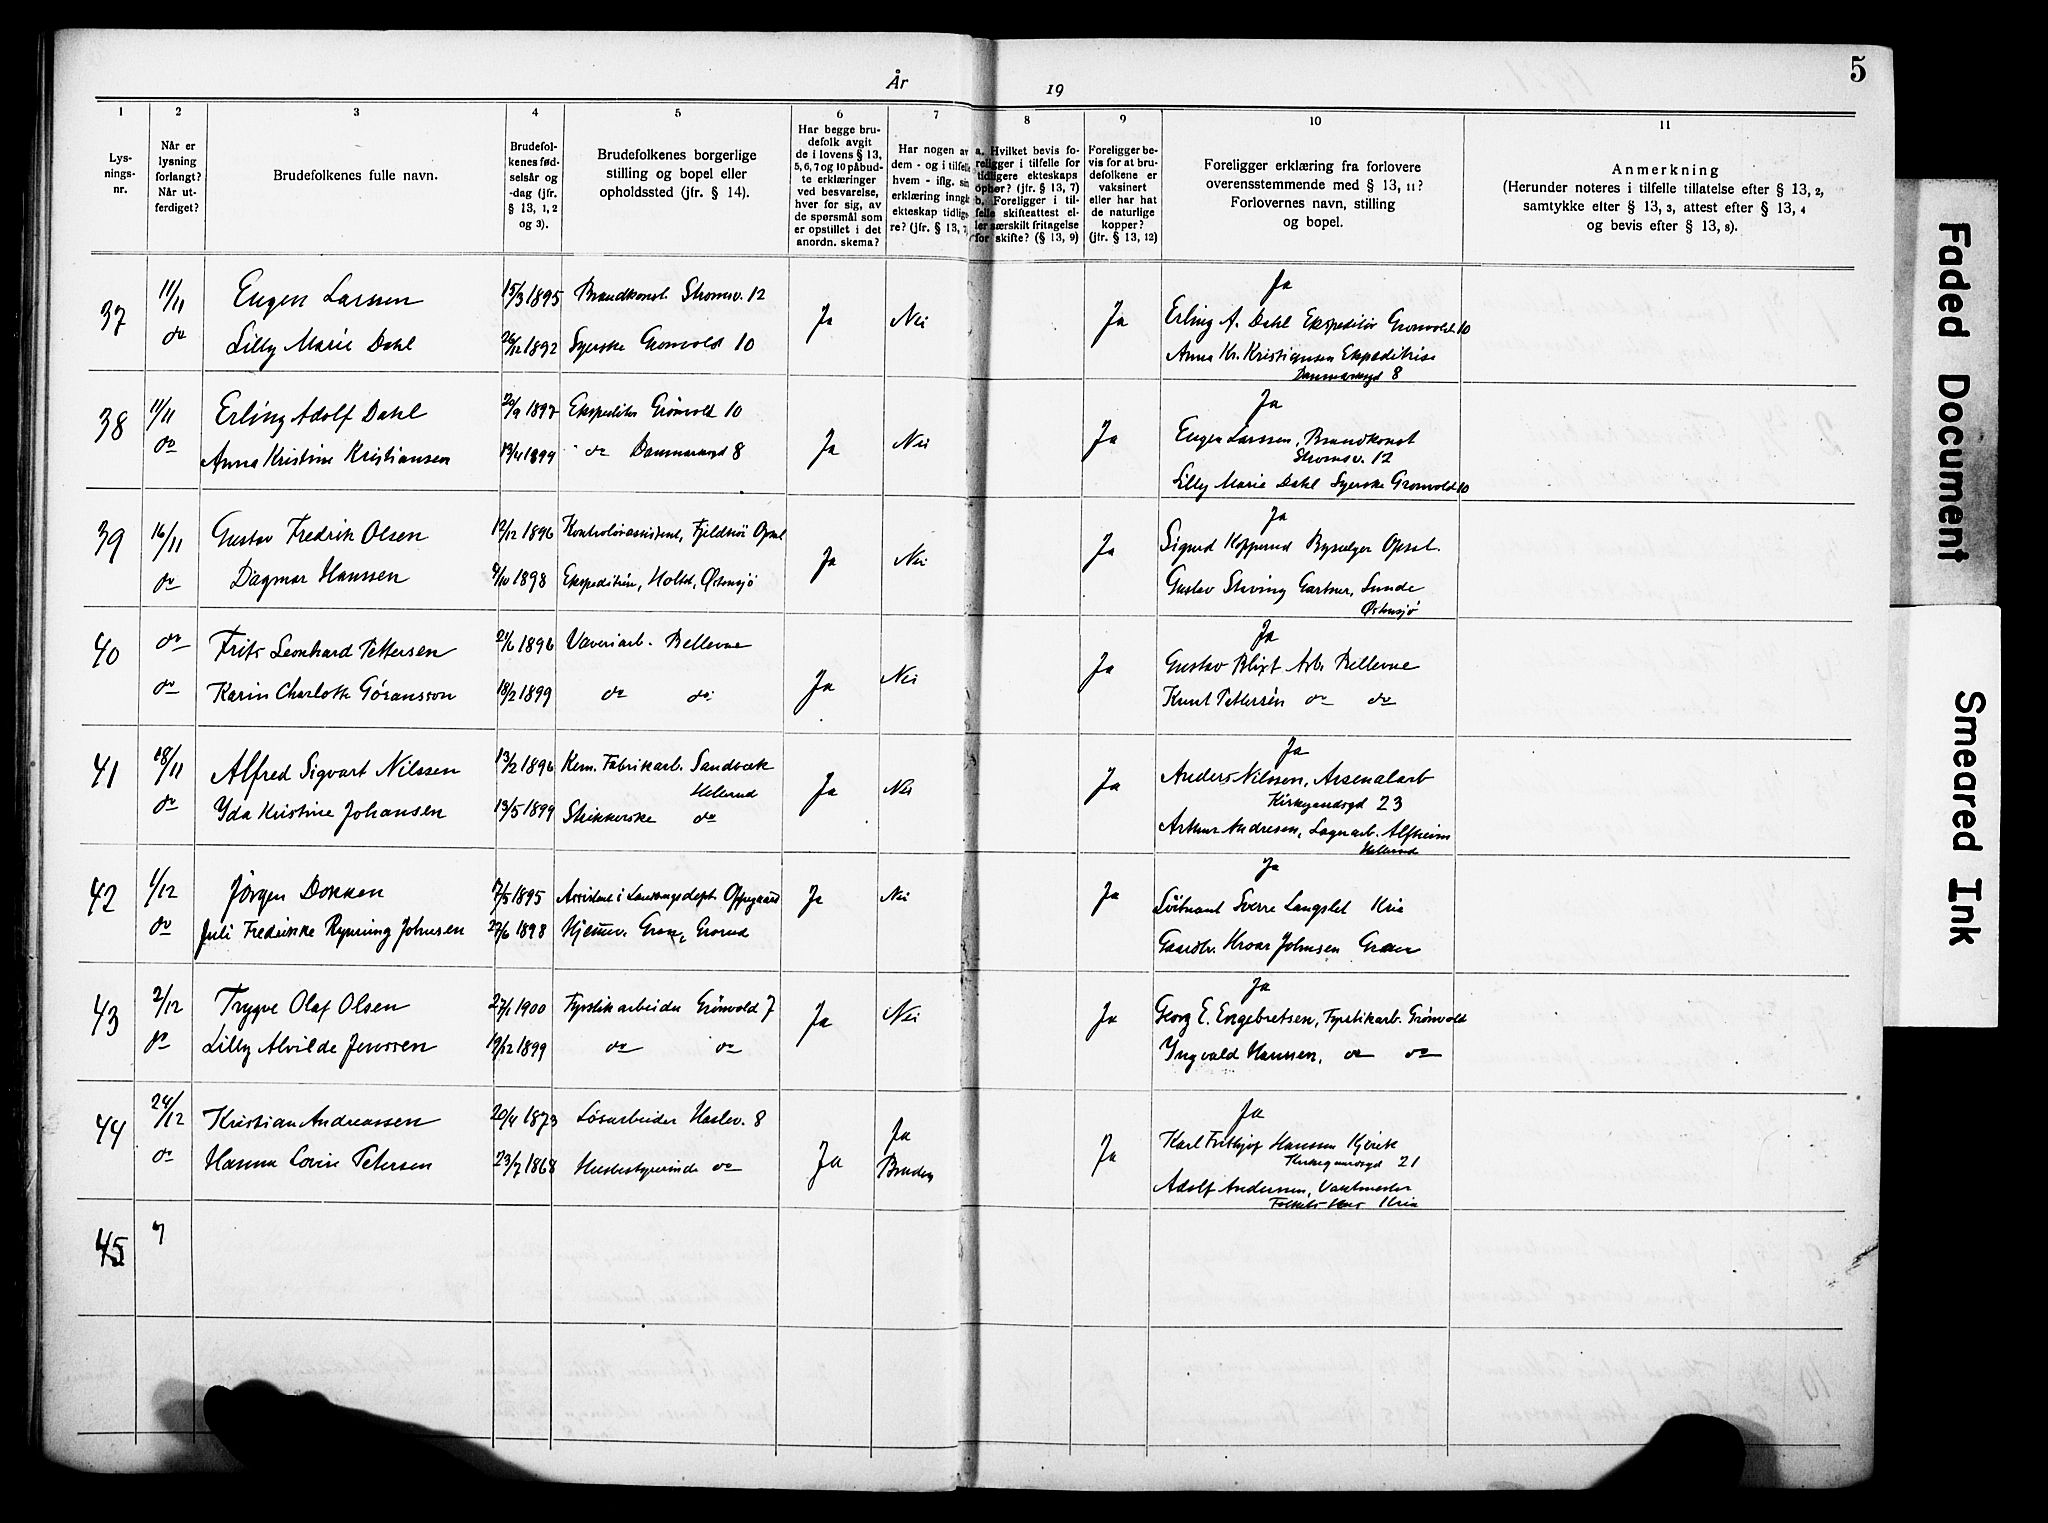 5
År
19
1 2 3 4 5 6 7 8 9 10 11
Lys-
nings-
nr.
Når er
lysning
forlangt?
Når ut-
ferdiget?
Brudefolkenes fulle navn.
Brudefol-
kenes fød-
selsår og
-dag (jfr.
§ 13, 1, 2
og 3).
Brudefolkenes borgerlige
stilling og bopel eller
opholdssted (jfr. § 14).
Har begge bru-
defolk avgit
de i lovens § 13,
5, 6, 7 og 10 påbud-
te erklæringer
ved besvarelse,
hver for sig, av
de spørsmål som
er opstillet i det
anordn. skema?
Har nogen av
dem - og i tilfelle
hvem - iflg. sin
erklæring inngå
ekteskap tidlige
re? (jfr. § 13, 7
a. Hvilket bevis fo-
religger i tilfelle for
tidligere ekteskaps
ophør? (jfr. § 13, 7)
b. Foreligger i til-
felle skifteattest el-
ler særskilt fritagelse
for skifte? (§ 13, 9)
Foreligger be-
vis for at bru-
defolkene er
vaksinert
eller har hat
de naturlige
kopper?
(jfr. § 13, 12)
Foreligger erklæring fra forlovere
overensstemmende med § 13, 11?
Forlovernes navn, stilling
og bopel.
Anmerkning
(Herunder noteres i tilfelle tillatelse efter § 13, 2,
samtykke efter § 13, 3, attest efter § 13, 4
og bevis efter § 13, 8).
37 11/11 Eugen Larssen 15/3 1895 Brandkonst. Stromsv. 12 Ja Nei Ja Ja
Erling A. Dahl Ekspeditør Grønvold 10
do Lilly Marie Dahl 26/12 1892 Syerske Gronvold 10
Anna Kr. Kristiansen Ekspeditrise
Danmarksgd 8
38 11/11 Erling Adolf Dahl 20/9 1897 Ekspeditør Grönvold 10 Ja Nei Ja Ja
Eugen Larssen, Brandkonst
Stromsv. 12
do Anna Kristine Kristiansen 13/4 1899 do Danmarksgd 8
Lilly Marie Dahl Syerske Gronvold 10
39 16/11 Gustav Fredrik Olsen 12/12 1896 Kontrolørassistent, Fjeldhei Opsal Ja Nei Ja Ja
Sigurd Kopperud Bysælger Opsal.
do Dagmar Hanssen 9/10 1898 Ekspeditrise, Holtet, Østensjø
Gustav Staving Gartner, Sunde
Østensjø
40 do Frits Leonhard Pettersen 21/6 1896 Væveriarb. Bellevue Ja Nei Ja Ja
Gustav Blixt Arb. Bellevue
do Karin Charlotte Göransson 18/2 1899 do do
Knut Pettersen do do
41 18/11 Alfred Sigvart Nilssen 13/2 1896 Kem. Fabrikarb. Sandbæk
Hellerud Ja Nei Ja Ja
Anders Nilssen, Arsenalarb
Kirkegaardsgd 23
do Yda Kristine Johansen 13/5 1899 Strikkerske do
Arthur Andresen, Lagerarb. Alfheim
Hellerud
42 1/12 Jörgen Dokken 7/5 1895 Assistent i Landbrugsdept. Oppegaard Ja Nei Ja Ja
Löitnant Sverre Langslet Kria
do Juli Fredrikke Rynning Johnsen 27/6 1898 Hjemmev. Gran, Grorud
Gaardbr. Hroar Johnsen Gran
43 2/12 Trygve Olaf Olsen 27/1 1900 Fyrstikarbeider Grönvold 7 Ja Nei Ja Ja
Georg E. Engebretsen, Fyrstikarb. Grönvold
do Lilly Alvilde Jenssen 19/12 1899 do do
Yngvald Hanssen, do do
44 24/12 Kristian Andreassen 20/4 1873 Løsarbeider Haslev. 8 Ja Ja
Bruden Ja Ja
Karl Frithjof Hanssen Kjörek
Kirkegaardsgd 21
do Hanna Lovise Petersen 23/7 1868 Husbestyrerinde do
Adolf Andersen, Vaktmester
Folkets Hus Kria
45
Faded Document
Smeared Ink